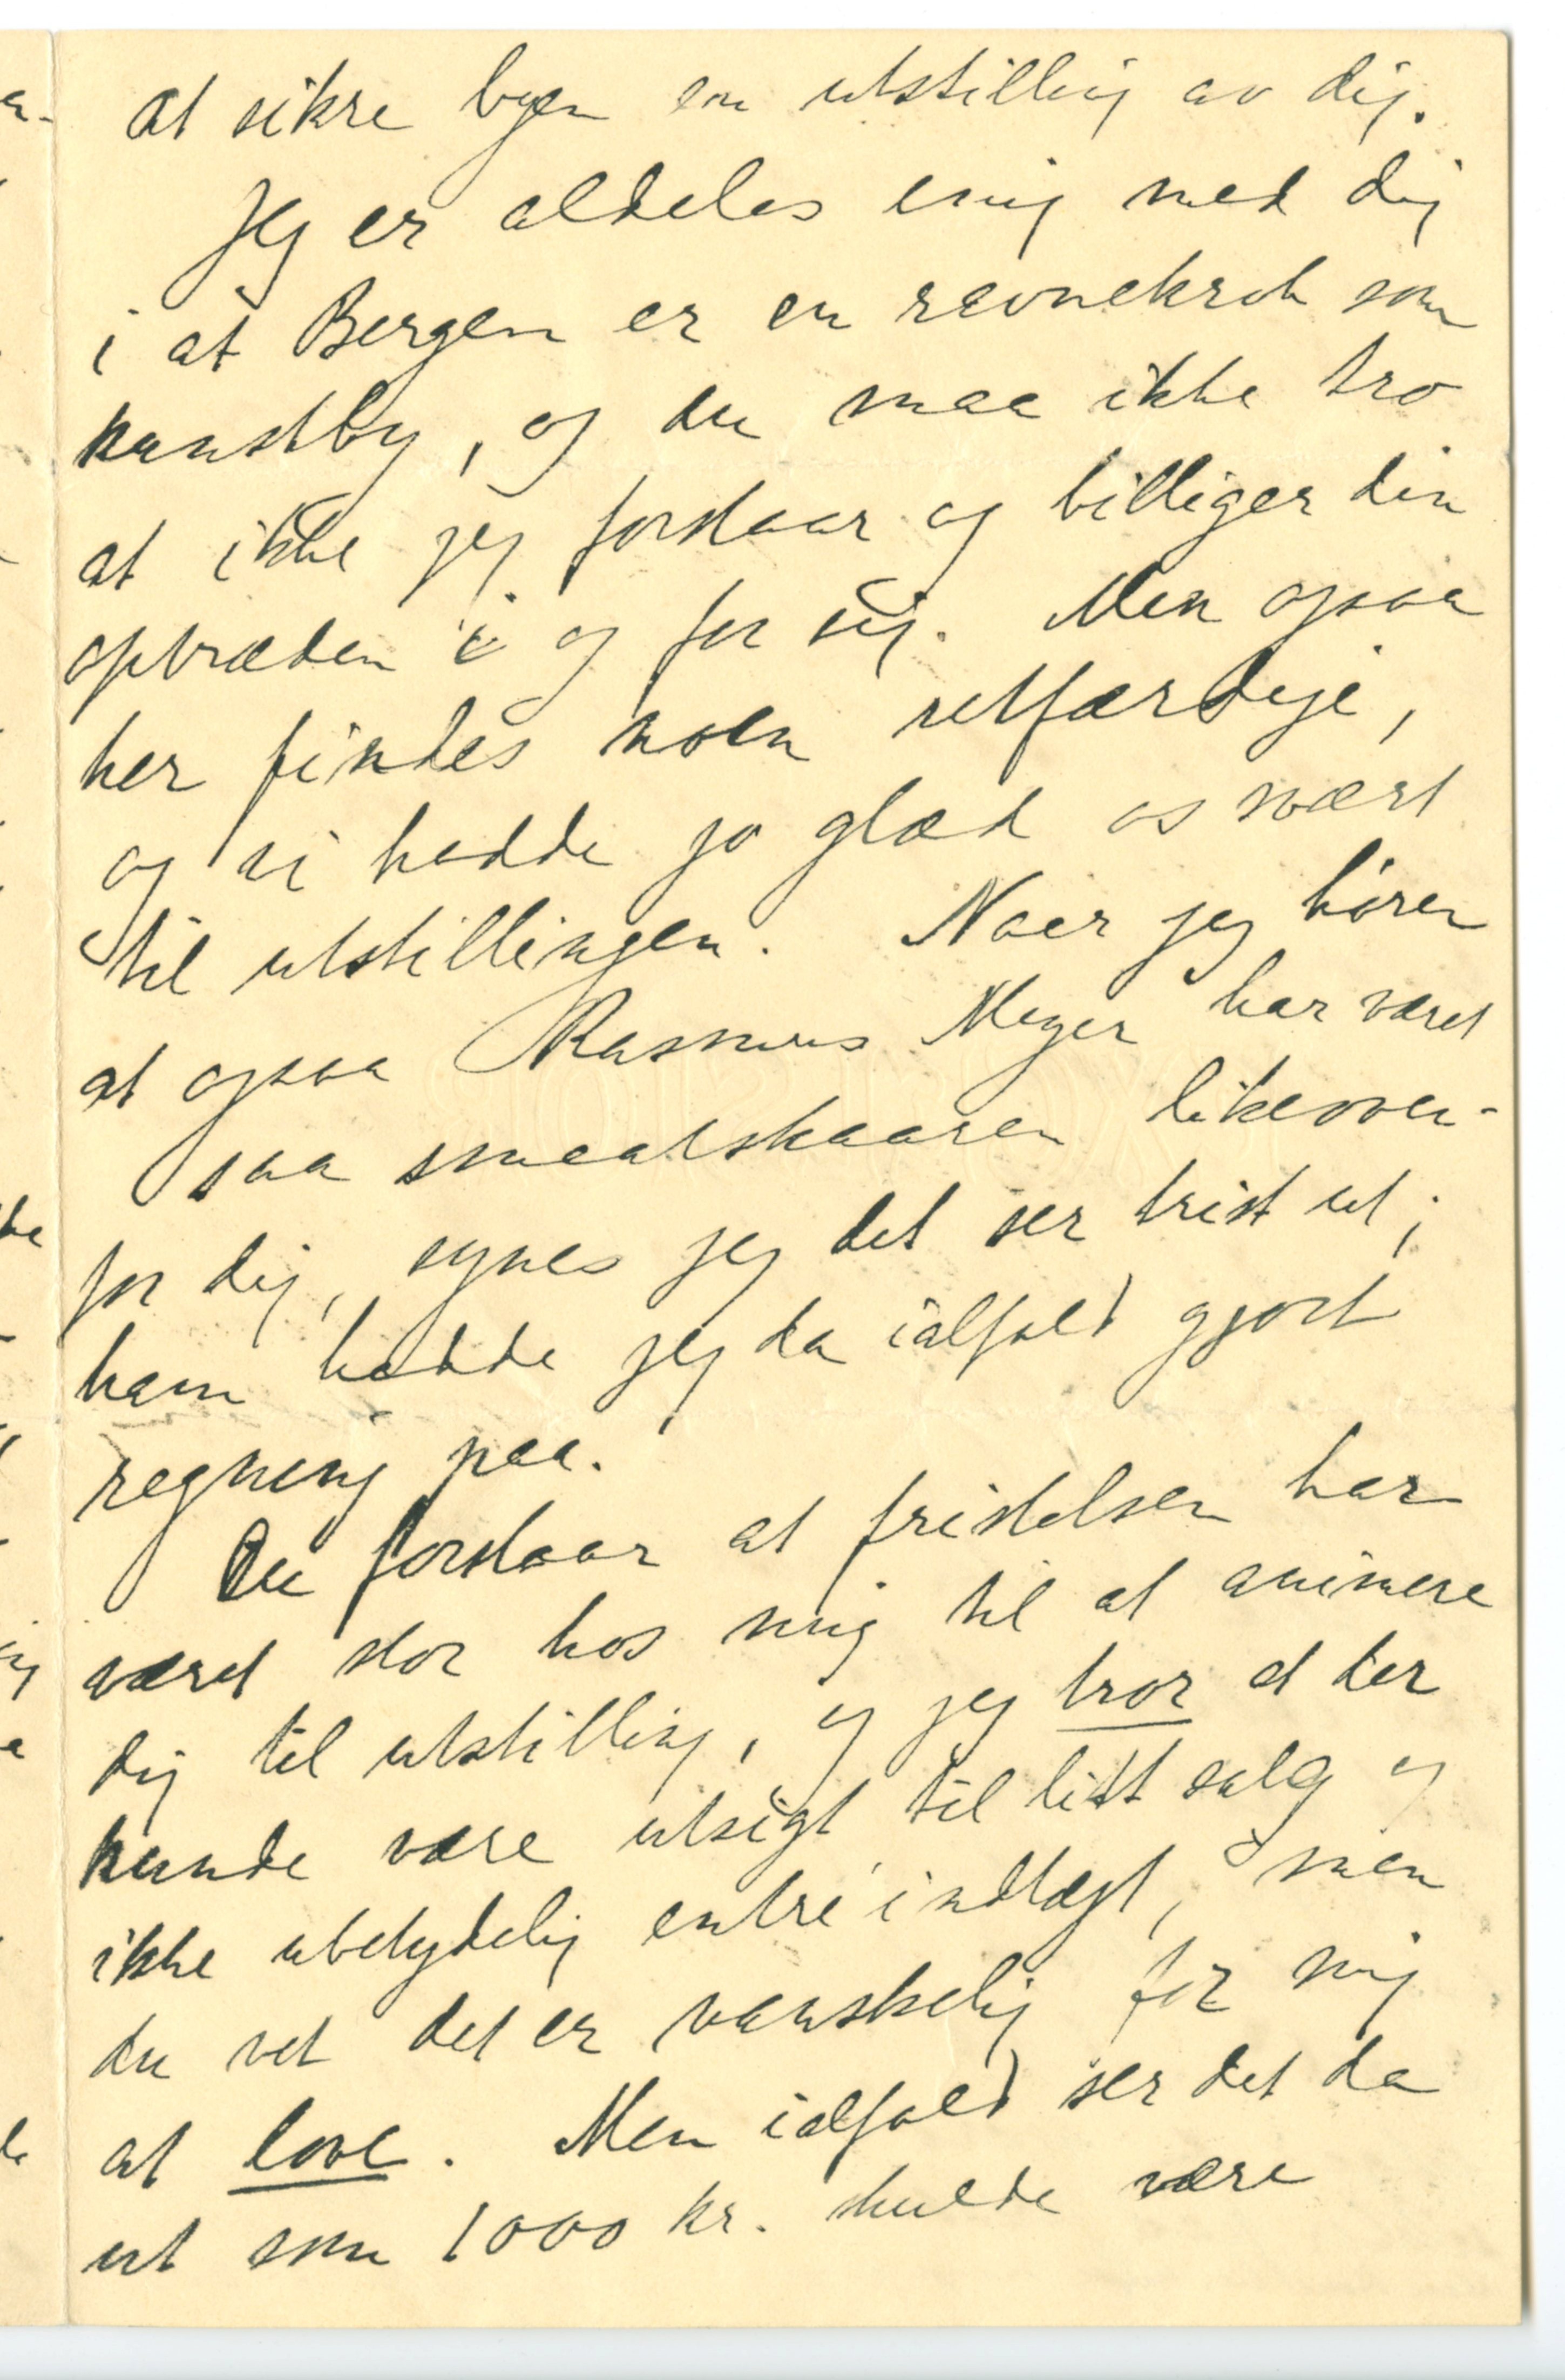 at sikre byen en utstilling av dig.
Jeg er aldeles enig med dig
i at Bergen er en ravnekrok som
kunstby, og du maa ikke tro
at ikke jeg forstaar og billiger din
optræden i og for sig. Men ogsaa
her findes noen retfærdige,
og vi hadde jo glæd os svært
til utstillingen. Naar jeg hører
at ogsaa Rasmus Meyer har været
saa smaatskaaren likeoven-
for dig, synes jeg det ser trist ut;
ham hadde jeg da ialfald gjort
regning paa.
Du forstaar at fristelsen har
været stor hos mig til at animere
dig til utstilling, og jeg tror at der
kunde være utsigt til litt salg og
ikke ubetydelig entréindtægt, men
du vet det er vanskelig for mig
at love. Men ialfald ser det da
ut som 1000 kr. skulde være